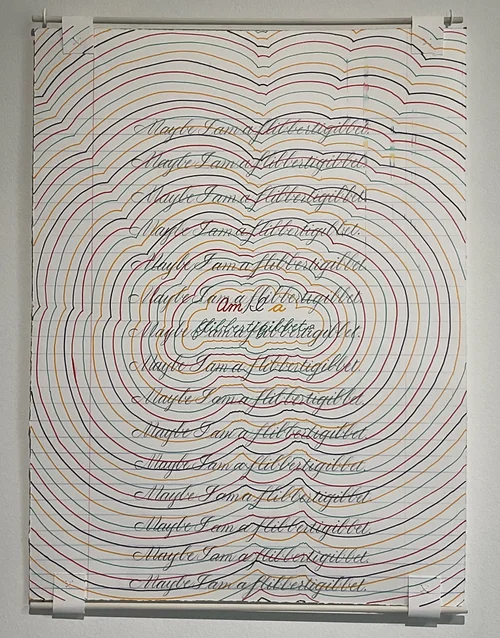 Maybe I am a flibbertigibbet.
Maybe I am a flibbertigibbet.
Maybe I am a flibbertigibbet.
Maybe I am a flibbertigibbet.
Maybe I am a flibbertigibbet.
Maybe I am a flibbertigibbet.
am I a
flibbertigibbet
Maybe I am a flibbertigibbet.
Maybe I am a flibbertigibbet.
Maybe I am a flibbertigibbet.
Maybe I am a flibbertigibbet.
Maybe I am a flibbertigibbet.
Maybe I am a flibbertigibbet.
Maybe I am a flibbertigibbet.
Maybe I am a flibbertigibbet.
Maybe I am a flibbertigibbet.